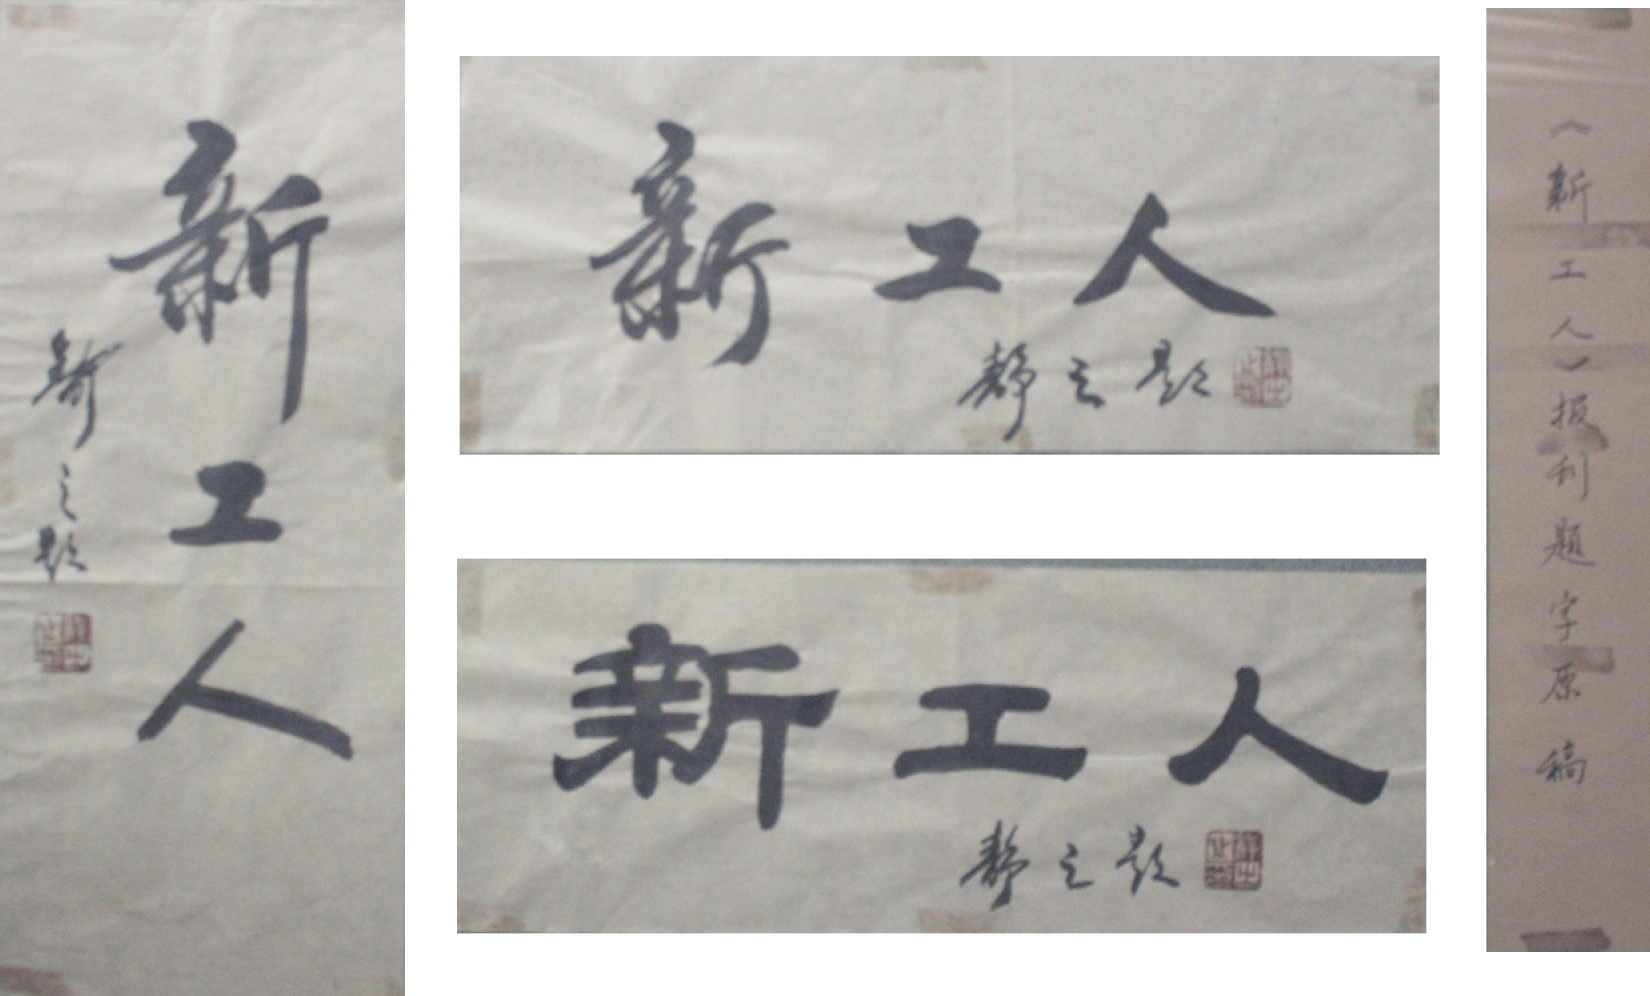 新工人
静之题
新工人
静之题
新工人
静之题
《新工人》报刊题字原稿